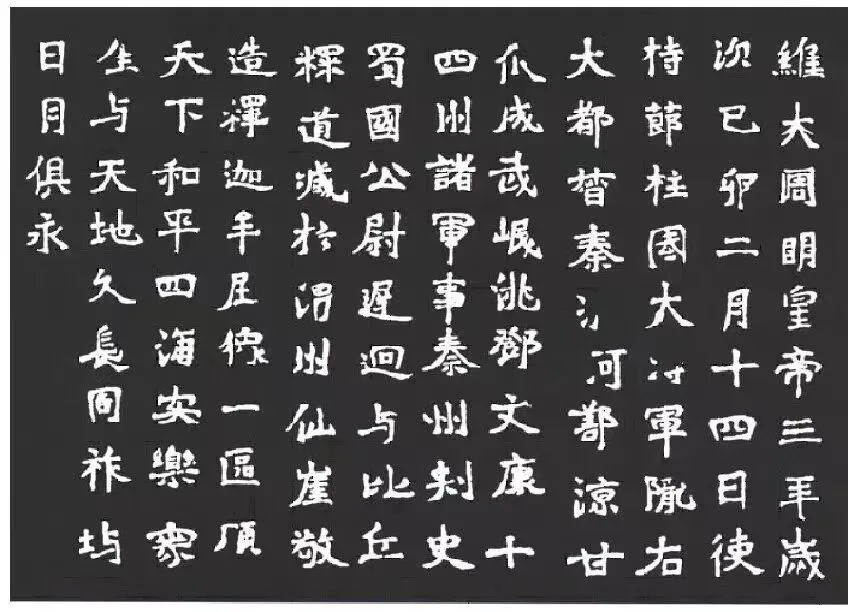 維大周明皇帝三年歲
次已卯二月十四日使
持節柱國大將軍隴右
大都督秦河鄯涼甘
瓜成武岷洮鄧文康十
四州諸軍事秦州刾史
蜀國公尉遲迥与比丘
釋道减於渭州仙崖敬
造釋迦牟尼像一區願
天下和平四海安樂衆
生与天地久長周祚与
日月俱永